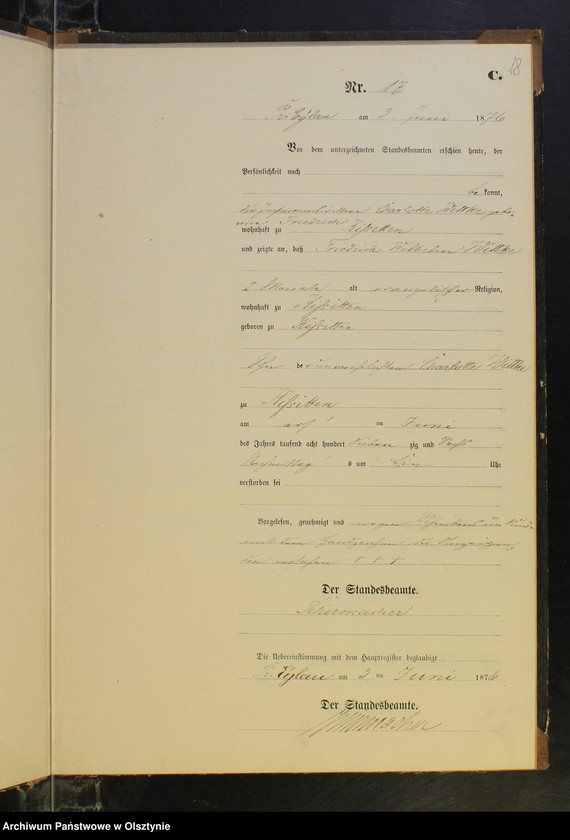 C. 18
Nr. 17
Pr. Eylau am 3. Juni 1876
Vor dem unterzeichneten Standesbeamten erschien heute, der
Persönlichkeit nach
be kannt,
Charlotte Wittke gebo-
Friedrich
wohnhaft zu Kissitten
und zeigte an, daß Friedrich Wilhelm Wittke
2 Monate alt evangelischer Religion,
wohnhaft zu Kissitten
geboren zu Kissitten
Sohn der unverehelichten Charlotte Wittke
zu Kissitten
am ten Juni
des Jahres tausend acht hundert sieben zig und sechs
Nachmittag s um Ein Uhr
verstorben sei
Vorgelesen, genehmigt und wegen
mit dem Handzeichen der Anzeigen-
den versehen + + +
Der Standesbeamte.
Die Uebereinstimmung mit dem Hauptregister beglaubigt
Pr. Eylau am 3. ten Juni 1876
Der Standesbeamte.
Archiwum Państwowe w Olsztynie